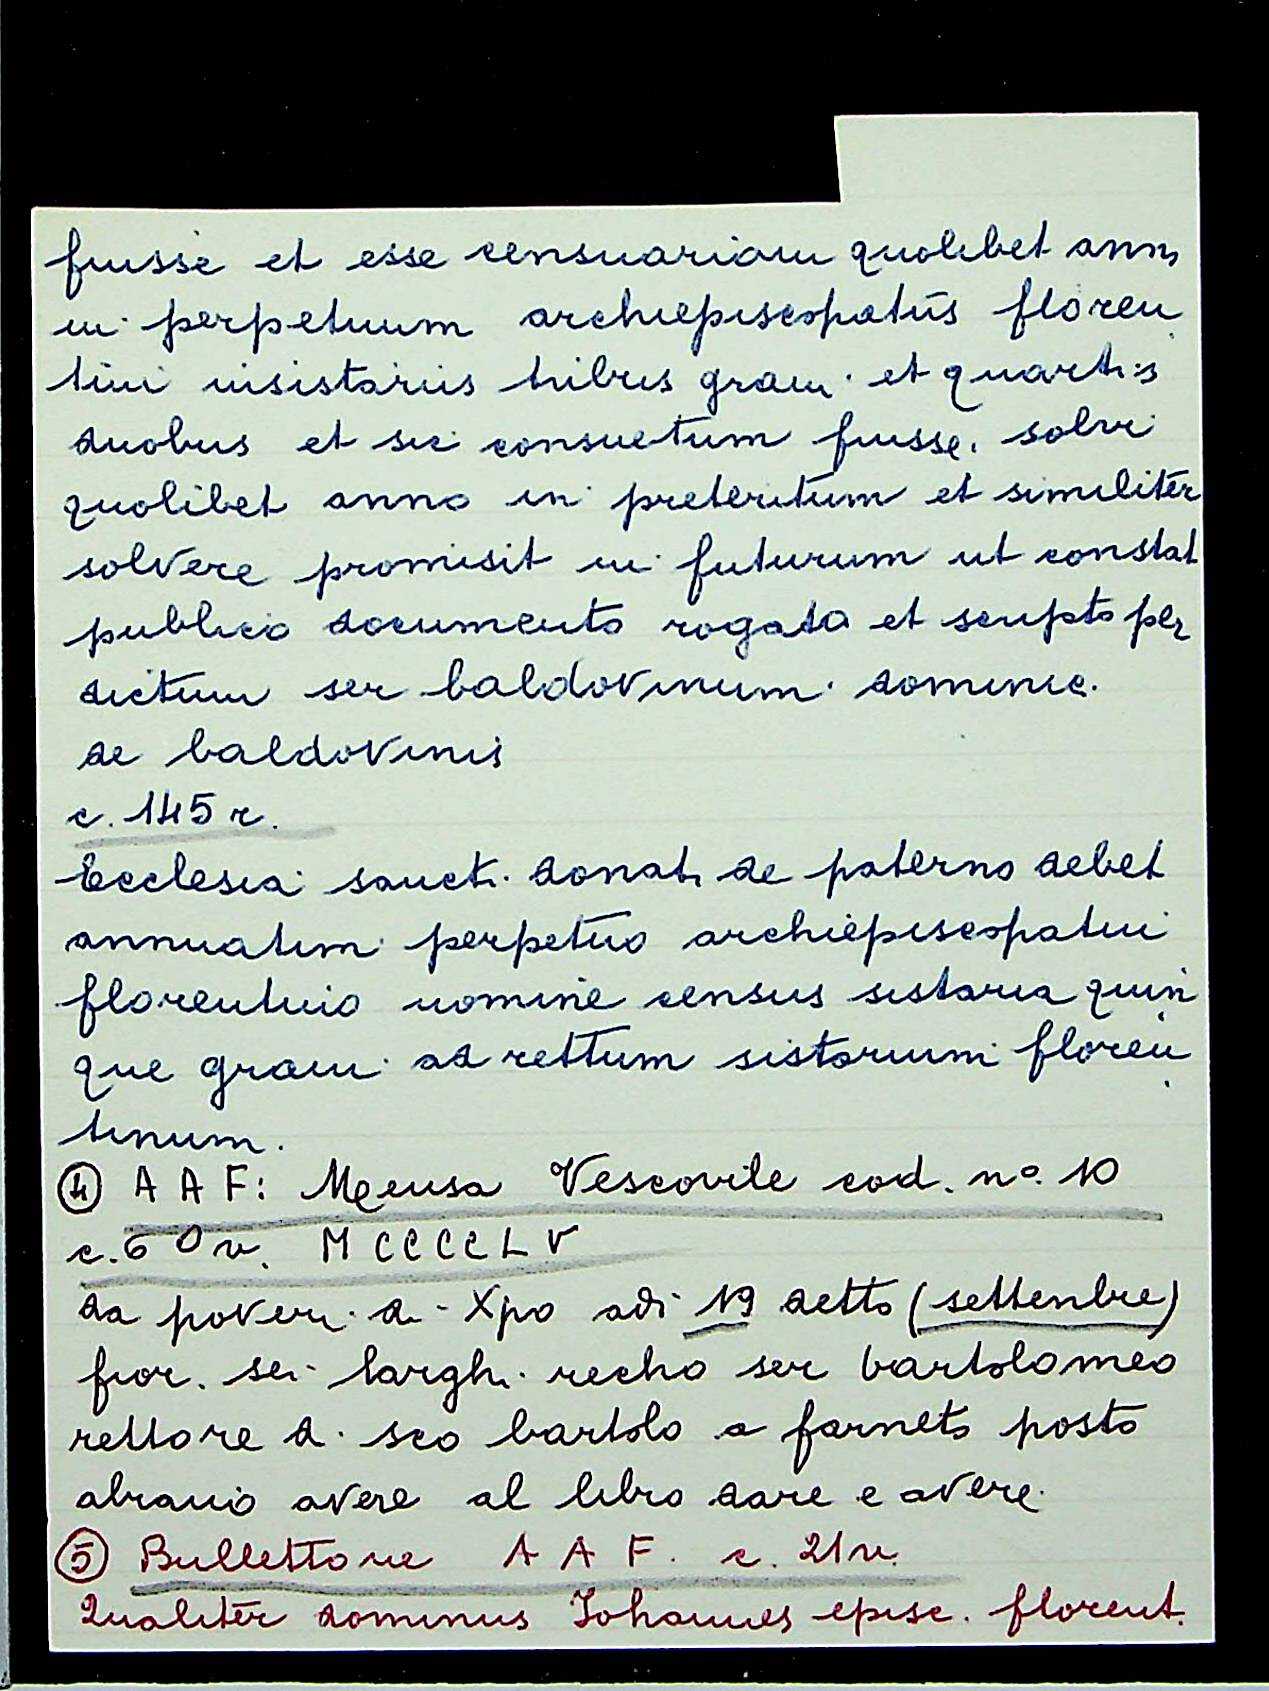 fuisse et esse censuariam quolibet anno
in perpetuum archiepiscopatus floren
tini insistariis tribus gran. et quartis
duobus et sic consuetum fuisse. solvi
quolibet anno in preteritum et similiter
solvere promisit in futurum ut constat
publico documento rogato et scripto per
dictum ser baldovinum. dominic.
de baldovinis
c. 145 r.
Ecclesia sancti donati de paterno debet
annuatim perpetuo archiepiscopatui
florentino nomine census sistaria quin
que gran. ad rettum sistarium floren
tinum.
④ A A F: Mensa Vescovile cod. n° 10
c. 60 v. M C C C C L V
da poveri di Xpo adi 19 detto (settenbre)
fior. sei largh. recho ser bartolomeo
rettore di sco bartolo a farneto posto
abiano avere al libro dare e avere.
⑤ Bullettone A A F. c. 21 v.
Qualiter dominus Iohannes episc. florent.